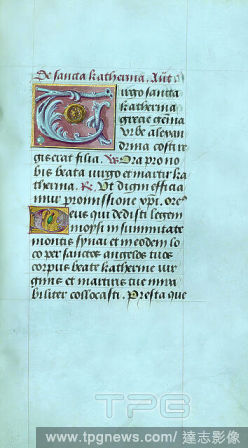 De sancta katherina. Añt
Virgo sancta
katherina
grecie gēma
vrbe alexan
drina costi re
gis erat filia. ℣. Ora pro no
bis beata virgo et martir ka
therina. ℟. Ut digni efficia
mur promissione xp̄i. orē
Deus qui dedisti legem
moysi in summitate
montis synai et in eodem lo
co per sanctos angelos tuos
corpus beate katherine vir
ginis et martiris tue mira
biliter collocasti. Presta que
TPG
www.tpgnews.com/ 達志影像